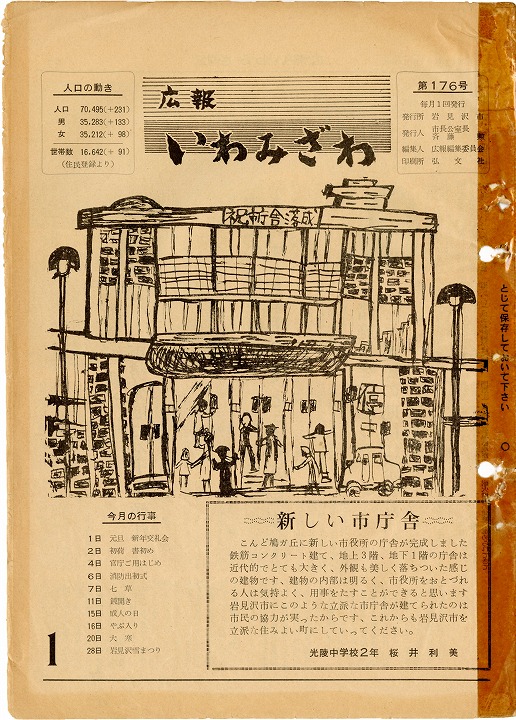 人口の動き
人口 70,495(+231)
男 35,283(+133)
女 35,212(+ 98)
世帯数 16,642(+ 91)
(住民登録より)
広報
いわみざわ
第176号
毎月1回発行
発行所 岩見沢市
発行人 市長公室長
斉藤
編集人 広報編集委員会
印刷所 弘文社
祝新庁舎落成
とじて保存しておいて下さい
今月の行事
1日 元旦 新年交礼会
2日 初荷 書初め
4日 官庁ご用はじめ
6日 消防出初式
7日 七草
11日 鏡開き
15日 成人の日
16日 やぶ入り
20日 大寒
28日 岩見沢雪まつり
1
新しい市庁舎
こんど鳩ガ丘に新しい市役所の庁舎が完成しました
鉄筋コンクリート建て、地上3階、地下1階の庁舎は
近代的でとても大きく、外観も美しく落ちついた感じ
の建物です、建物の内部は明るく、市役所をおとづれ
る人は気持よく、用事をたすことができると思います
岩見沢市にこのような立派な市庁舎が建てられたのは
市民の協力が実ったからです、これからも岩見沢市を
立派な住みよい町にしていってください。
光陵中学校2年 桜井利美